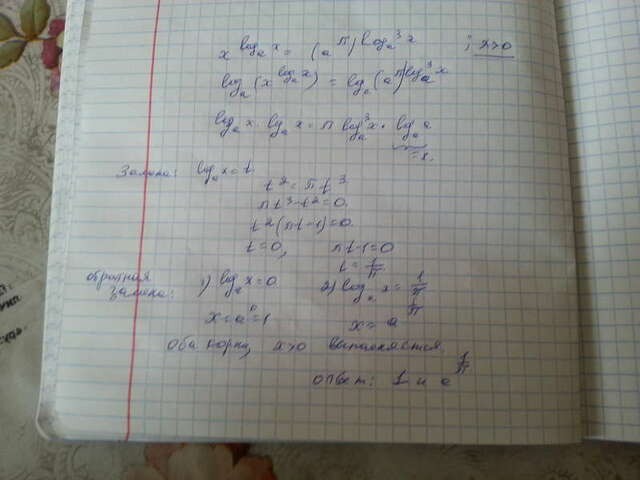 x^(log_a x) = (a^π)^(log_a^3 x) ; x>0
log_a (x^(log_a x)) = log_a (a^π)^(log_a^3 x)
log_a x · log_a x = π log_a^3 x · log_a a
=1.
Замена: log_a x = t
t^2 = πt^3
πt^3 - t^2 = 0.
t^2(πt-1)=0.
t=0, πt-1=0
t = 1/π
обратная замена: 1) log_a x = 0 2) log_a x = 1/π
x = a^0 = 1 x = a^(1/π)
Оба корня, x>0 выполняется.
ответ: 1 и a^(1/π)